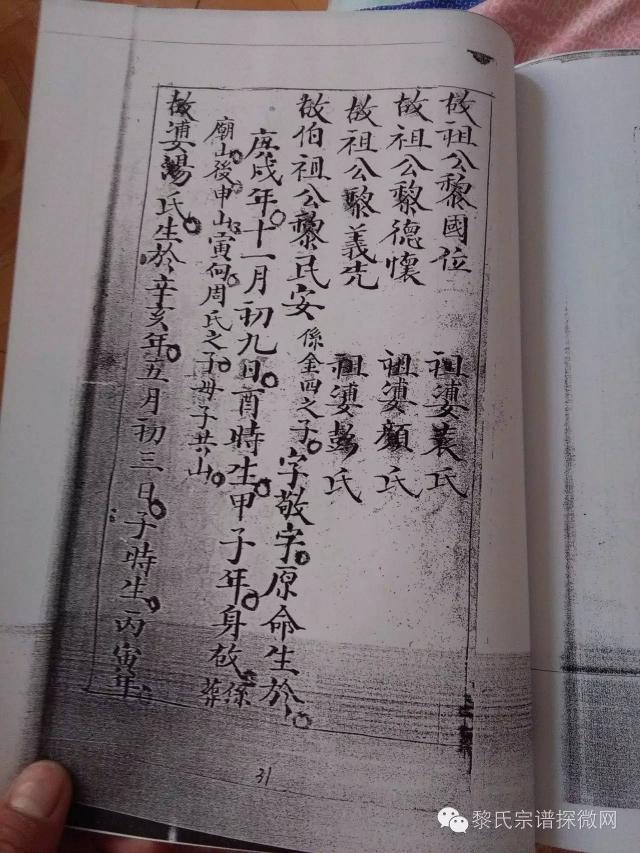 故祖公黎國位 祖婆裴氏
故祖公黎德懷 祖婆顏氏
故祖公黎義先 祖婆彭氏
故伯祖公黎民安係金四之子字敬字原命生於
庚戌年十一月初九日酉時生甲子年身故係葬
廟山後申山寅向周氏之子母子共山
故婆湯氏生於辛亥年五月初三日子時生丙寅年
31
黎氏宗谱探微网